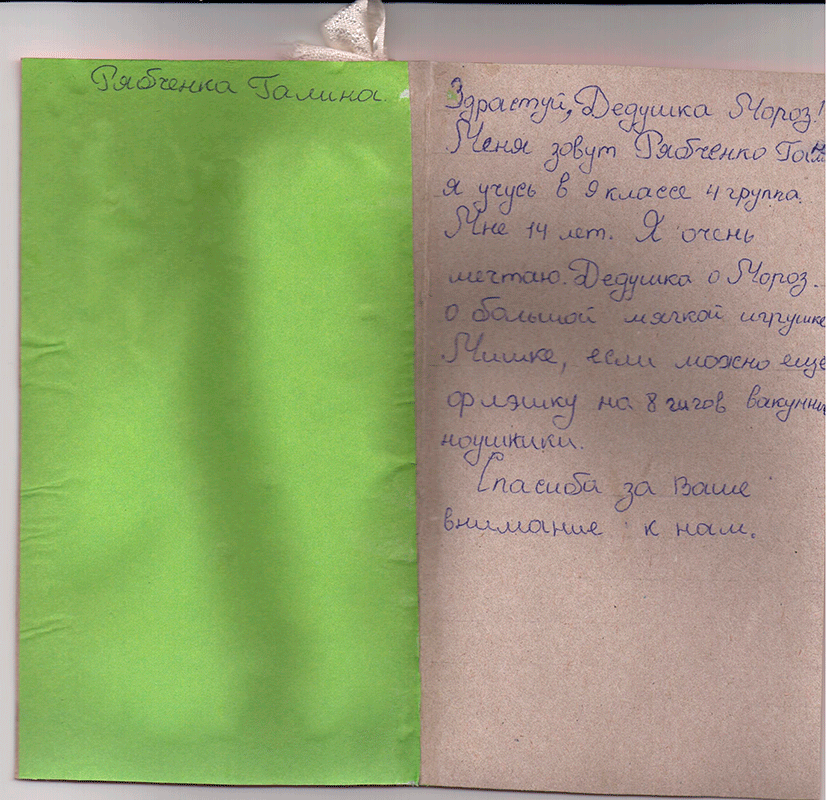 Рябченка Галина.
Здрастуй, Дедушка Мороз!
Меня зовут Рябченко
я учусь в 9 классе 4 группа.
Мне 14 лет. Я очень
мечтаю. Дедушка о Мороз.
о большой мягкой игрушке
Мишке, если можно еще
флэшку на 8 гигов
ноушники.
Спасиба за Ваше
внимание к нам.